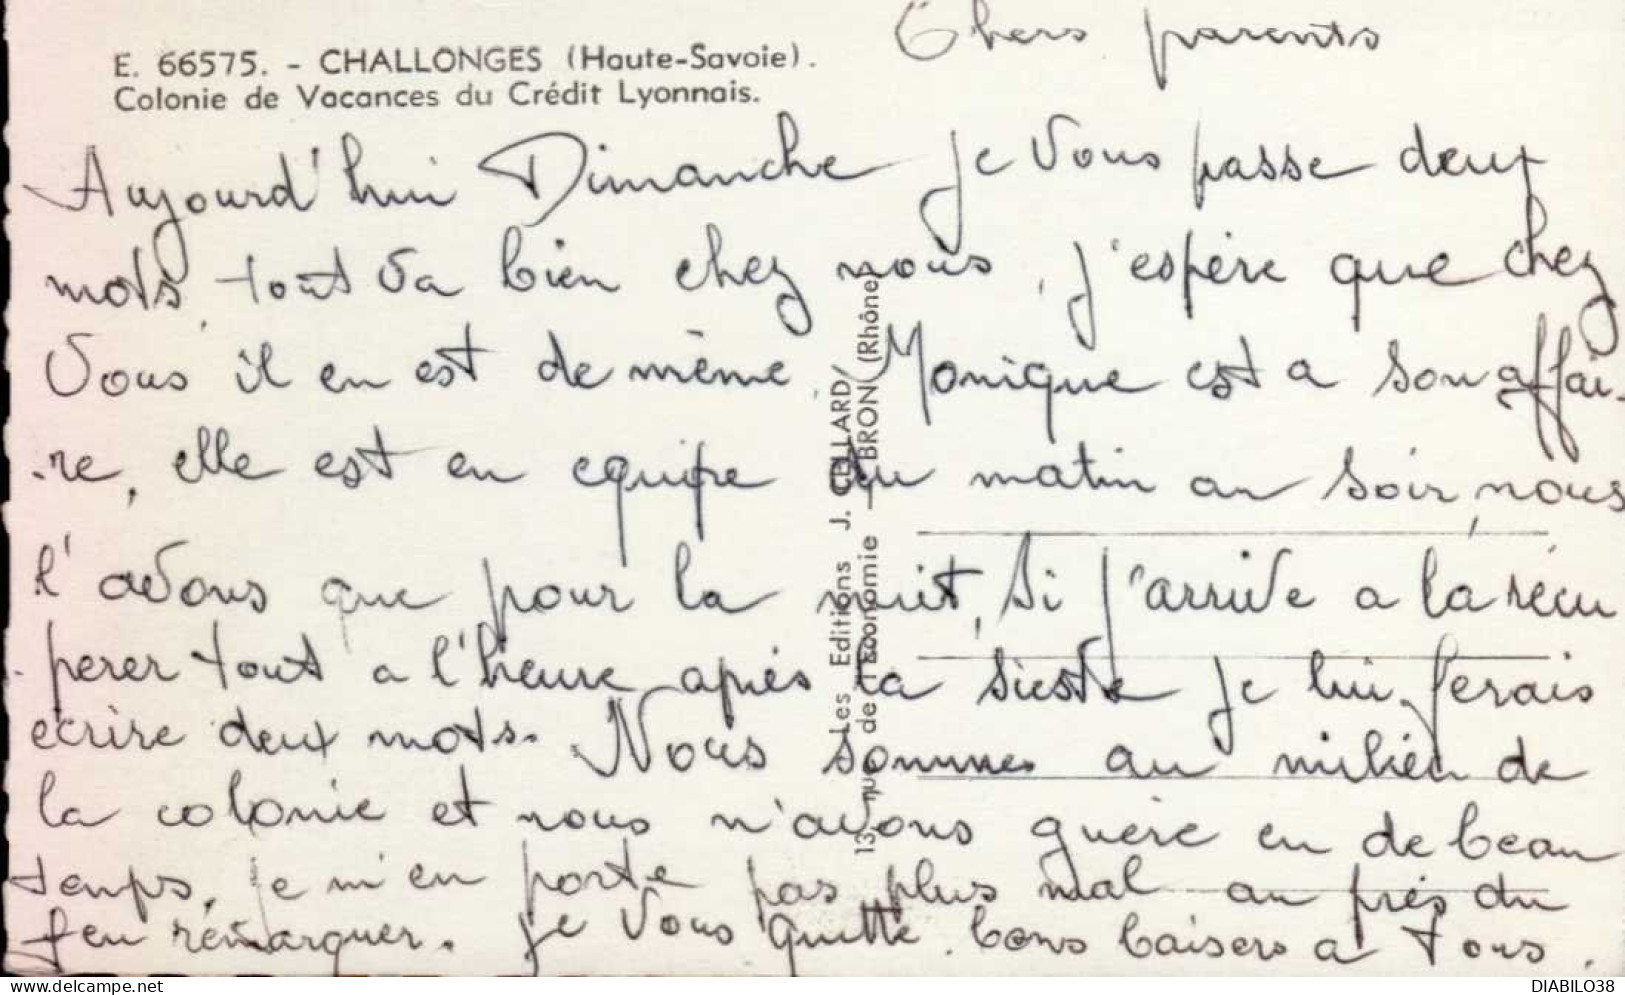 Chers parents
E. 66575. - CHALLONGES (Haute-Savoie).
Colonie de Vacances du Crédit Lyonnais.
Aujourd'hui Dimanche je vous passe deux
mots, tout va bien chez nous, j'espère que chez
vous il en est de même. Monique est a son affai-
-re, elle est en equipe du matin au soir, nous
l'avons que pour la nuit, si j'arrive a la récu
-perer tout a l'heure après la sieste je lui ferais
ecrire deux mots. Nous sommes au milieu de
la colonie et nous n'avons guère eu de beau
temps, je m'en porte pas plus mal au près du
feu remarquer. je vous quitte. bons baisers a tous.
Les Editions J. CELLARD
13, rue de l'Economie - BRON (Rhône)
www.delcampe.net
DIABILO38